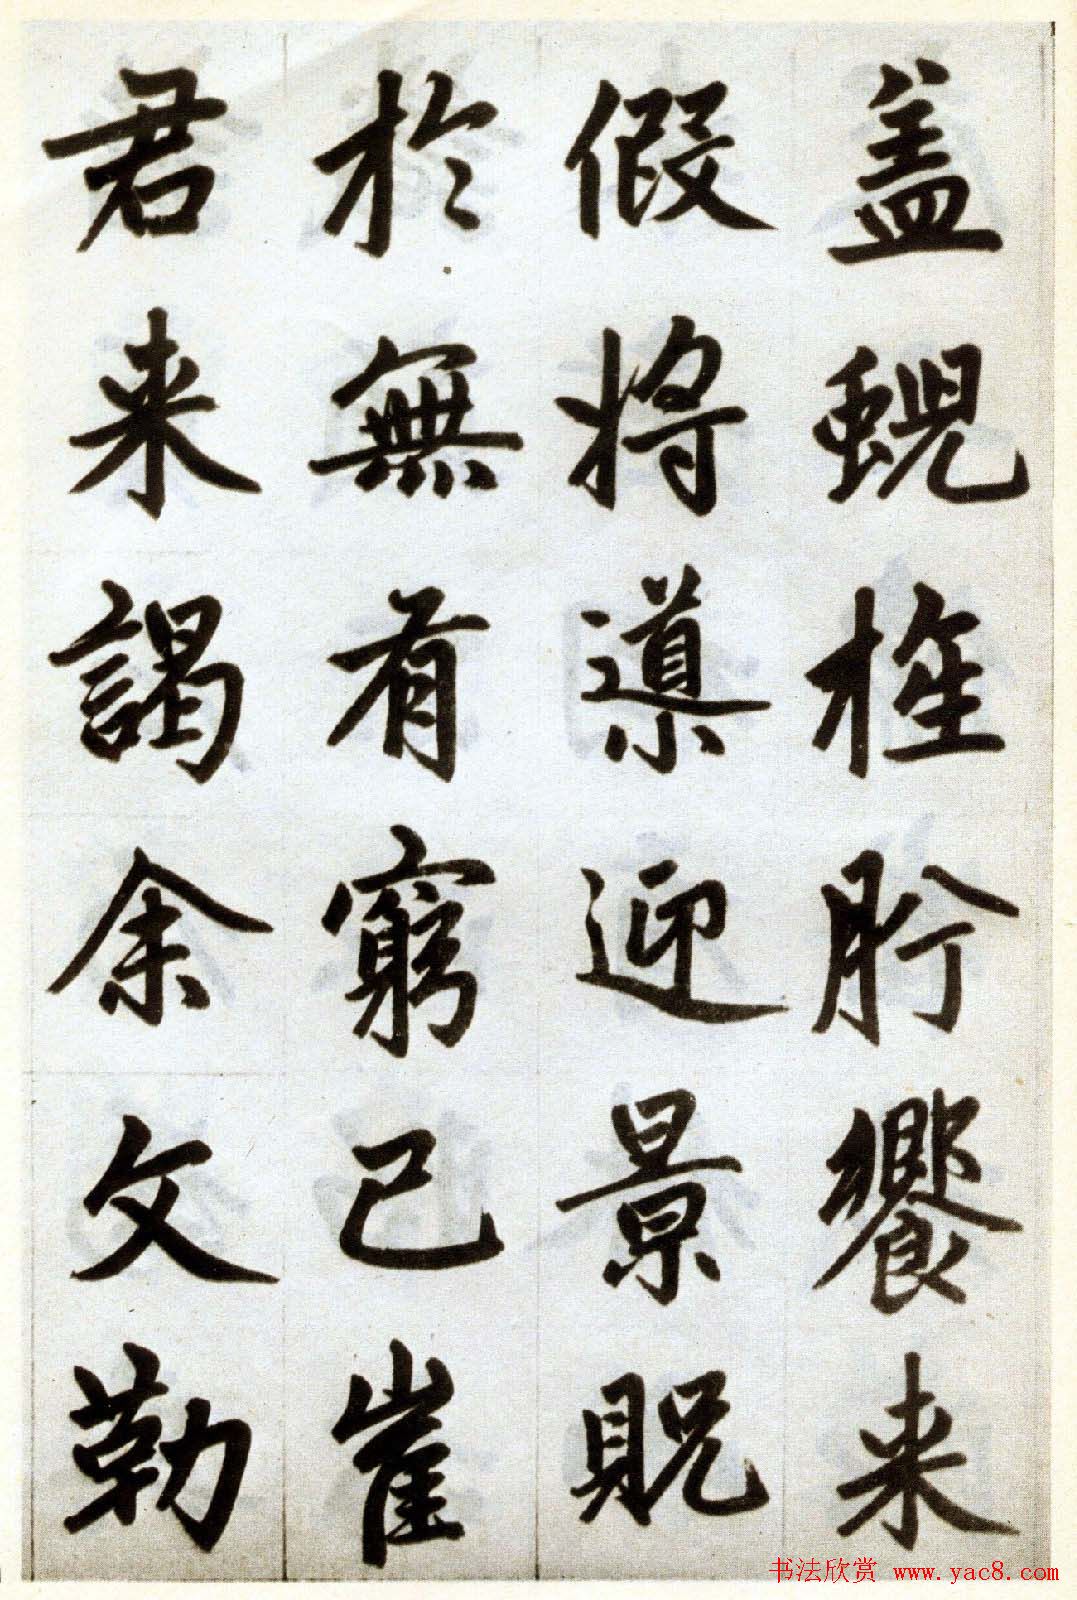 盖蜺旌肸饗来
假将導迎景貺
於無有窮已崔
君来謁余文勒
书法欣赏 www.yac8.com